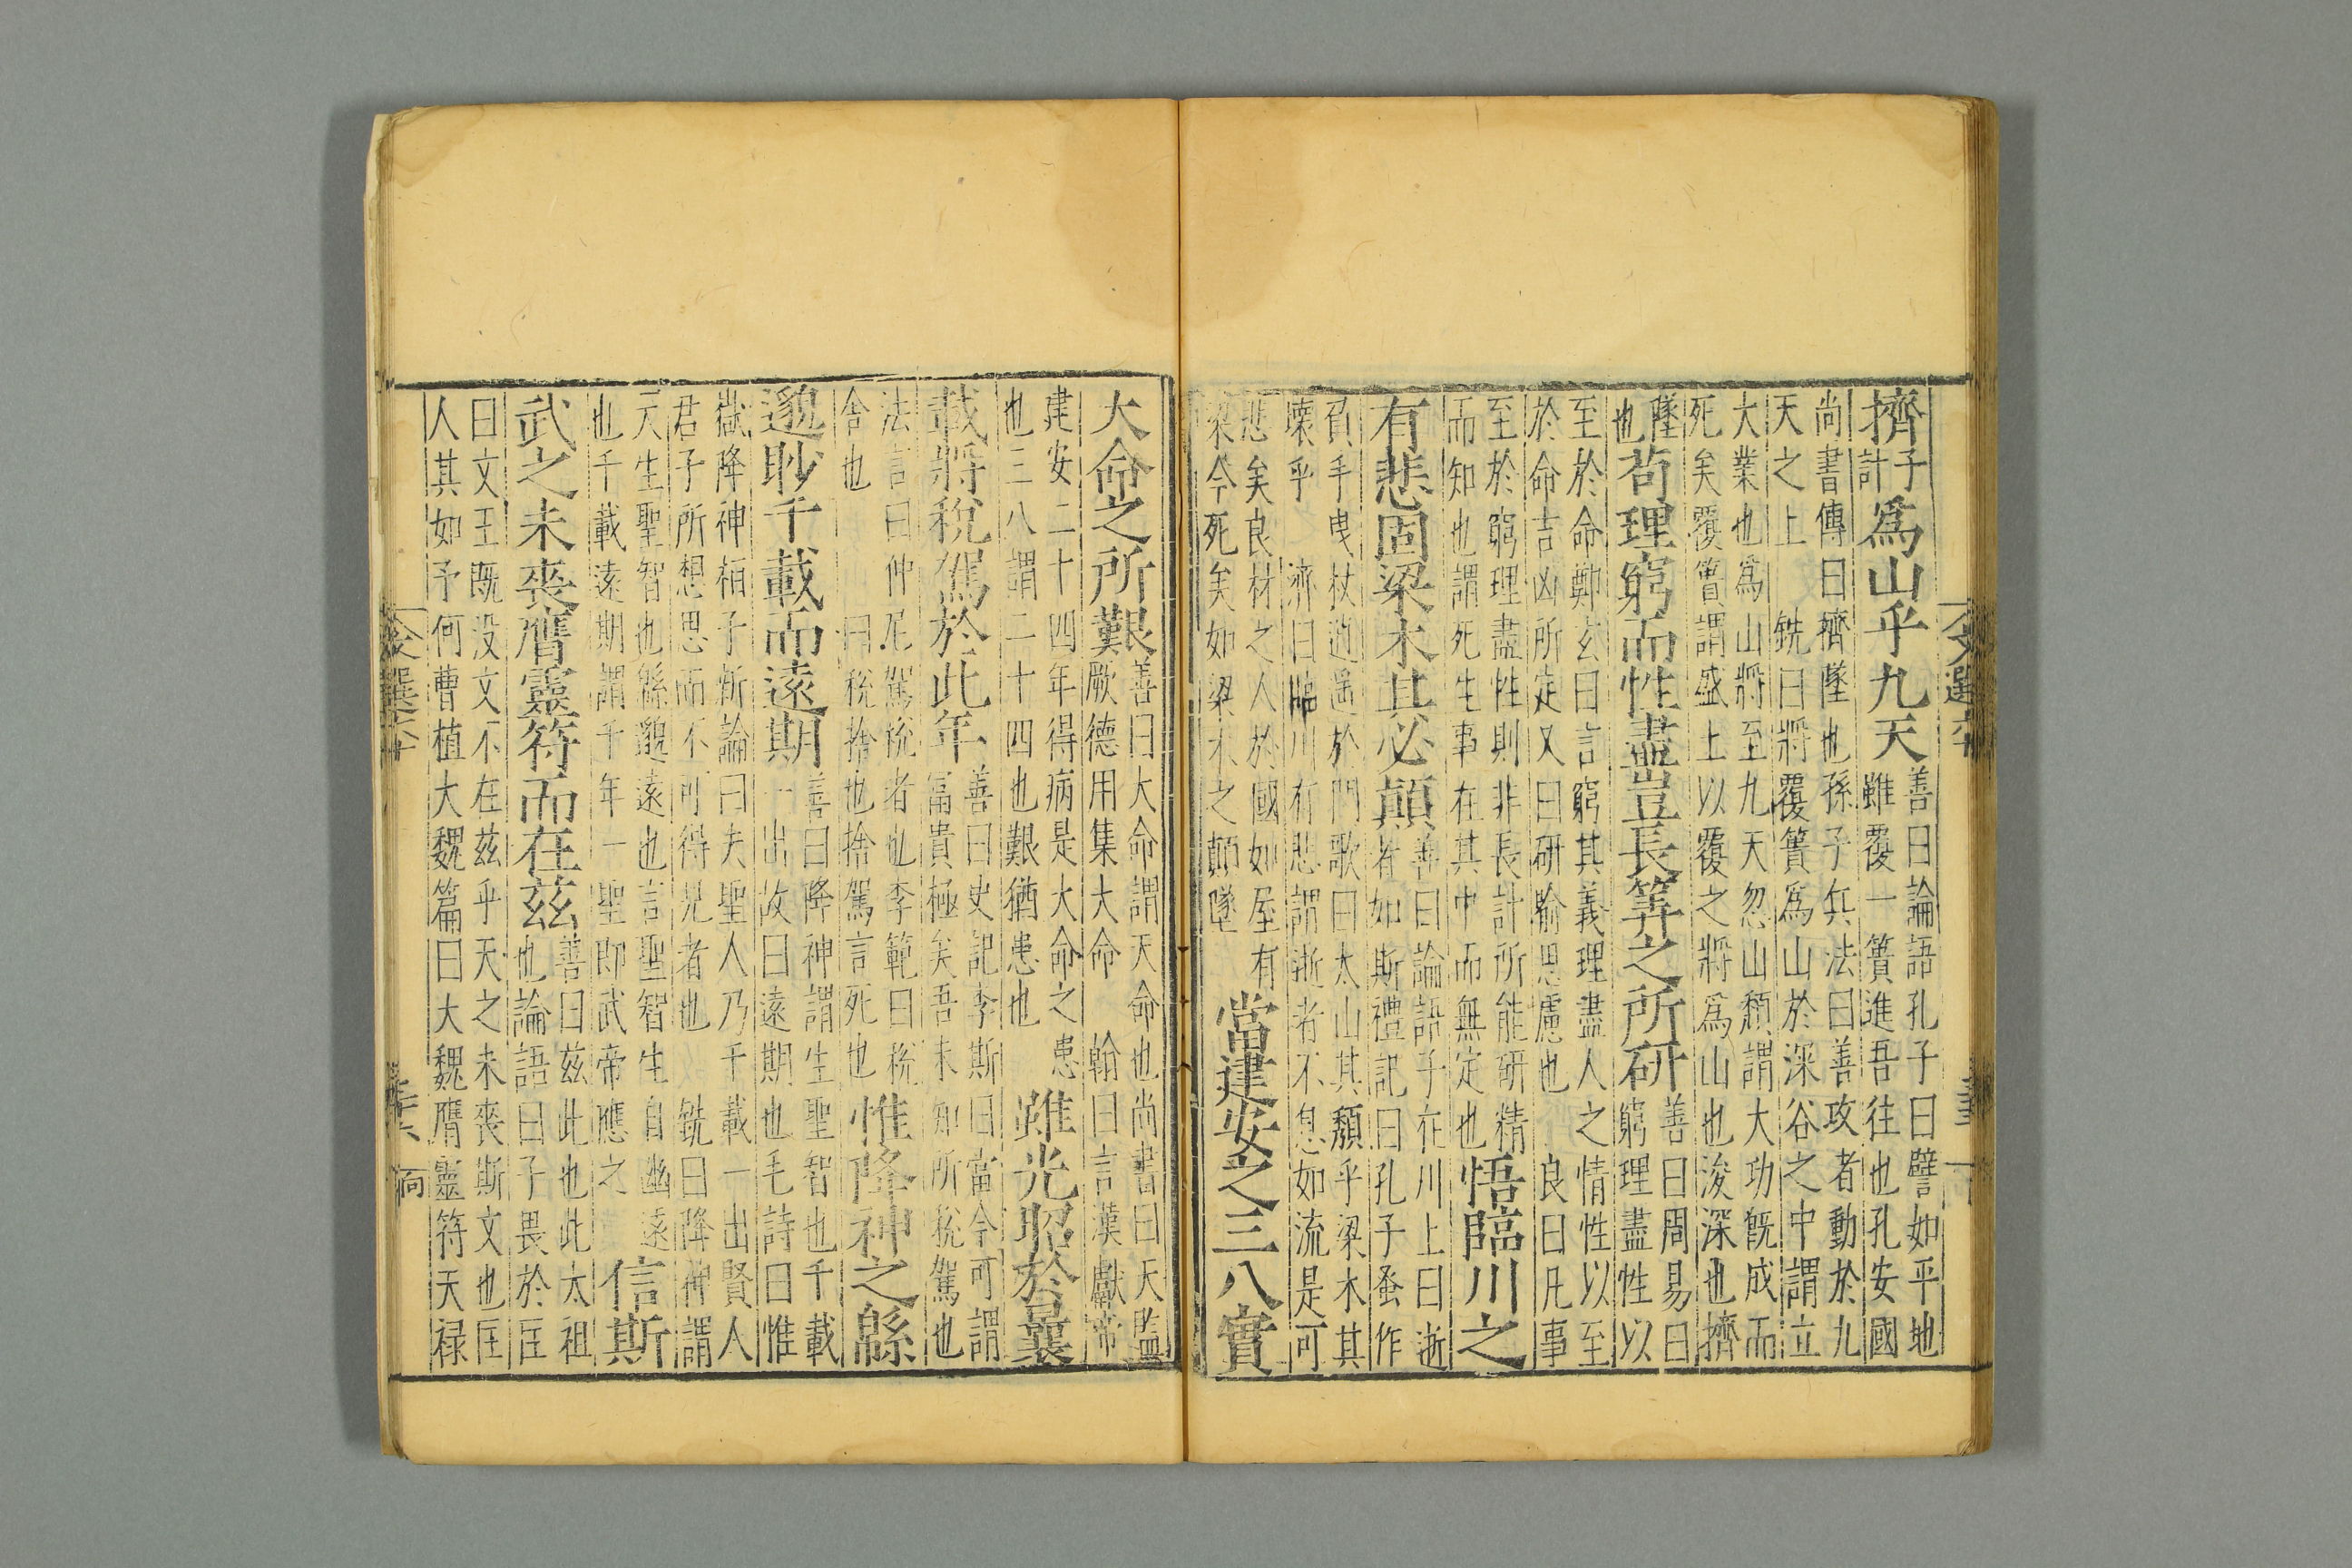 擠子計爲山乎九天善曰論語孔子曰譬如平地
雖覆一簣進吾往也孔安國
尚書傳曰擠墜也孫子兵法曰善攻者動於九
天之上 銑曰將覆簣爲山於深谷之中謂立
大業也爲山將至九天忽山頹謂大功旣成而
死矣覆簣謂盛土以覆之將爲山也浚深也擠
墜
也苟理窮而性盡豈長筭之所研善曰周易曰
窮理盡性以
至於命鄭玄曰言窮其義理盡人之情性以至
於命吉凶所定又曰研喻思慮也 良曰凡事
至於窮理盡性則非長計所能研精
而知也謂死生事在其中而無定也悟臨川之
有悲固梁木其必顛善曰論語子在川上曰逝
者如斯禮記曰孔子蚤作
負手曳杖逍遥於門歌曰太山其頽乎梁木其
壞乎 濟曰臨川有悲謂逝者不息如流是可
悲矣良材之人於國如屋有
梁今死矣如梁木之顛墜當建安之三八實
大命之所艱善曰大命謂天命也尚書曰天監
厥德用集大命 翰曰言漢獻帝
建安二十四年得病是大命之患
也三八謂二十四也艱猶患也雖光昭於曩
載將稅駕於此年善曰史記李斯曰當今可謂
富貴極矣吾未知所稅駕也
法言曰仲尼駕稅者也李範曰稅
舍也 曰稅捨也捨駕言死也惟降神之緜
邈眇千載而遠期善曰降神謂生聖智也千載
一出故曰遠期也毛詩曰惟
嶽降神桓子新論曰夫聖人乃千載一出賢人
君子所想思而不可得見者也 銑曰降神謂
天生聖智也緜邈遠也言聖智生自幽遠
也千載遠期謂千年一聖卽武帝應之信斯
武之未喪膺靈符而在兹善曰兹此也此太祖
也論語曰子畏於匡
曰文王旣没文不在兹乎天之未喪斯文也匡
人其如予何曹植大魏篇曰大魏膺靈符天禄
文選六十